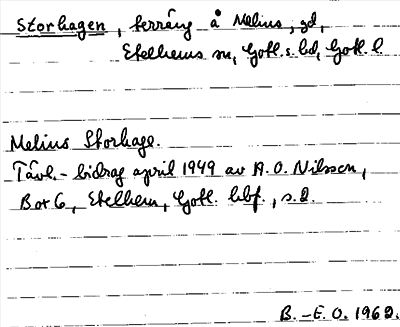 Storhagen, terräng å Melius, gd,
Etelhems sn, Gotl. s. hd, Gotl. l.
Melius Storhage.
Tävl.-bidrag april 1949 av A. O. Nilsson,
Box 6, Etelhem, Gotl. hbf., s. 2.
B.-E. O. 1962.